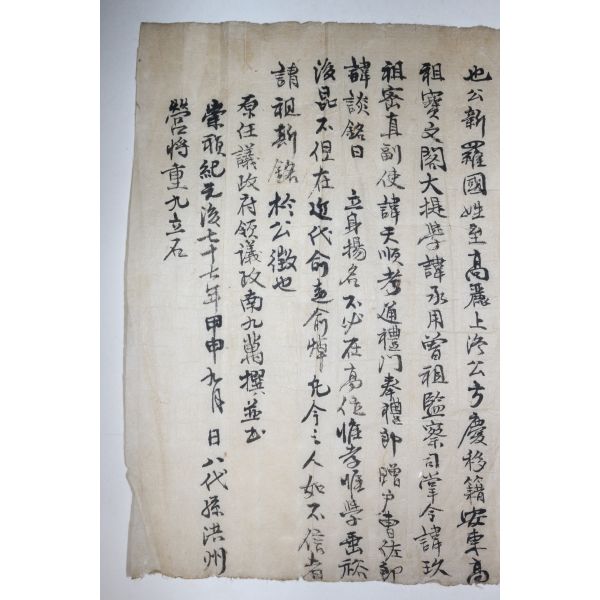 也公新羅國姓至高麗上洛公方慶移籍安東高
祖寶文閣大提學諱承用曾祖監察司掌令諱玖
祖密直副使諱天順考通禮門奉禮郎贈戶曹佐郎
諱談銘曰 立身揚名不必在高位惟孝惟學垂裕
後昆不但在近代俞遠俞焯凡今之人如不信者
請祖斯銘於公徵也
原任議政府領議政南九萬撰並書
崇禎紀元後七十七年甲申九月 日八代孫洪州
營將重九立石